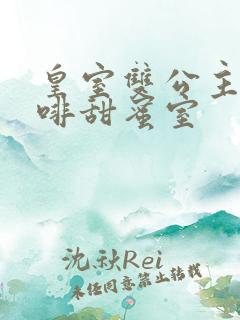 皇室雙公主
啡甜蜜室
沈秋Rei
未經同意禁止轉載